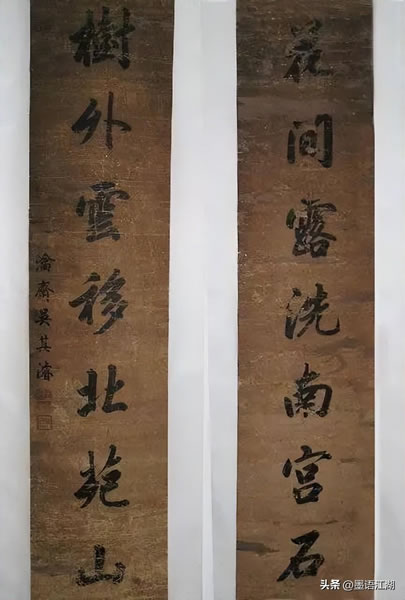 花间露洗南宫石
樹外雲移北苑山
瀹齋吳其濬
头条@墨语江湖